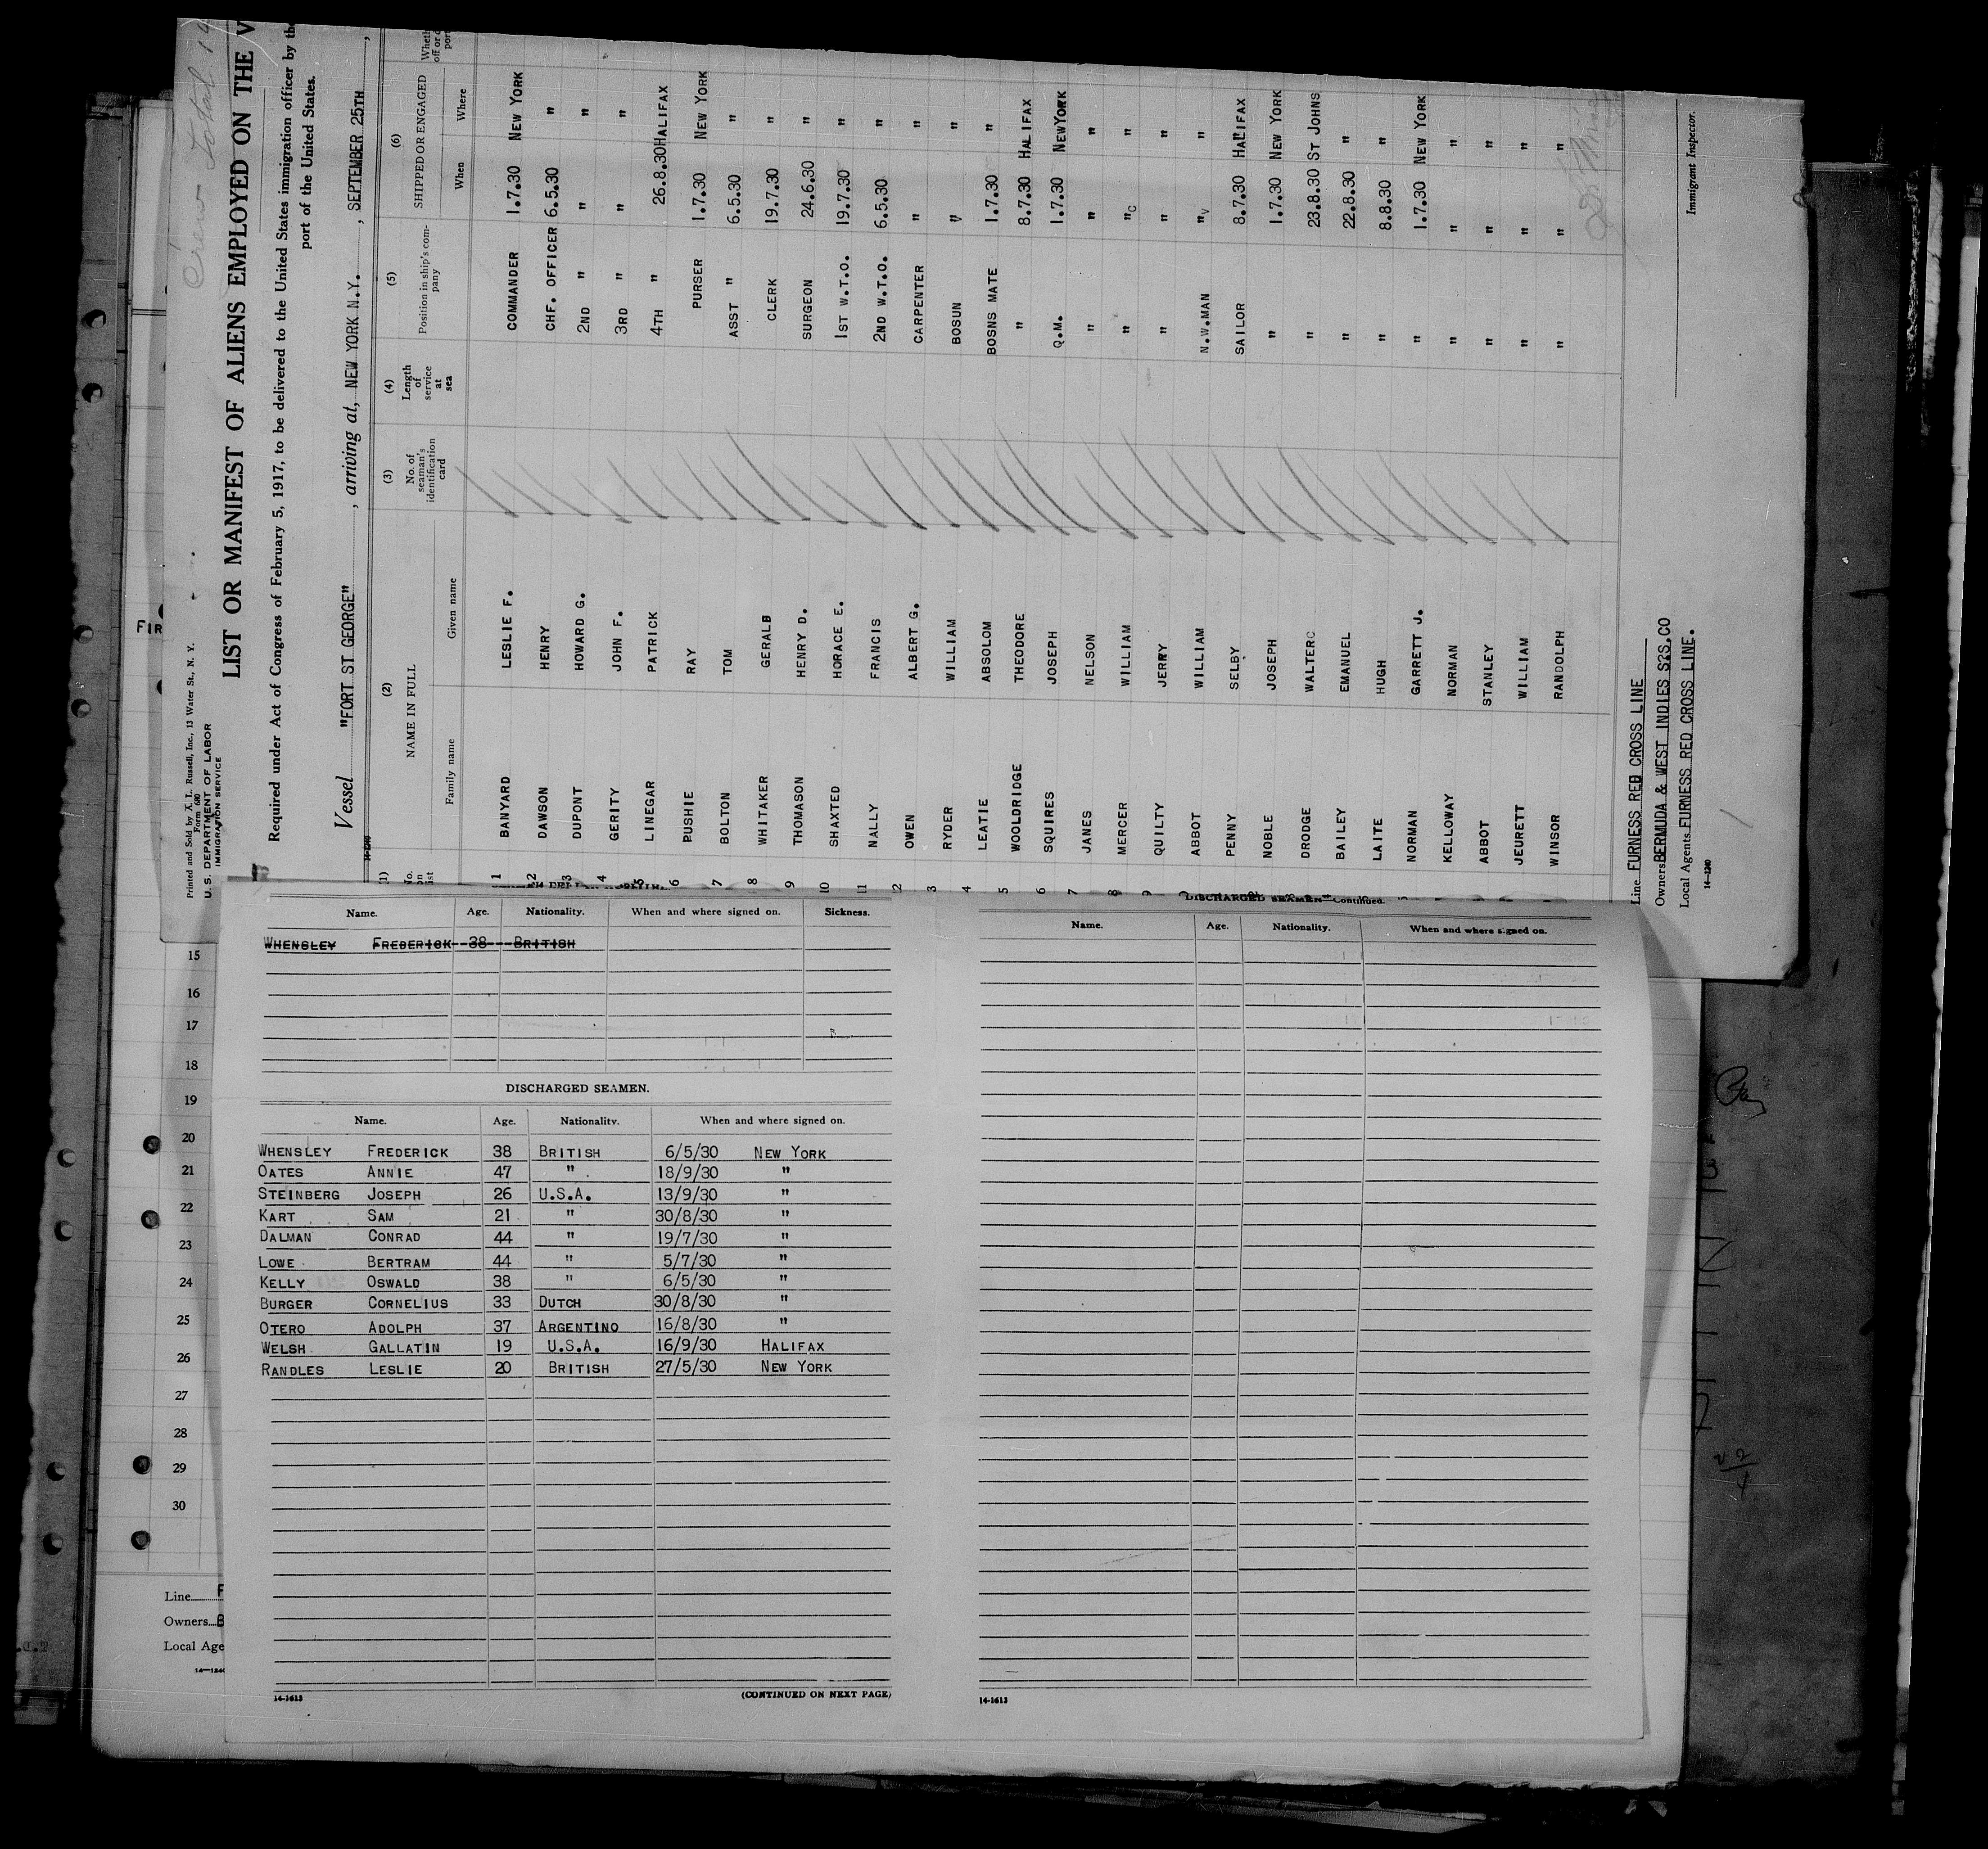 Crew Total 19
Printed and Sold by A. L. Russell, Inc., 13 Water St., N. Y.
Form 680
U. S. DEPARTMENT OF LABOR
IMMIGRATION SERVICE
LIST OR MANIFEST OF ALIENS EMPLOYED ON THE V
Required under Act of Congress of February 5, 1917, to be delivered to the United States immigration officer by the
port of the United States.
Vessel "FORT ST GEORGE", arriving at, NEW YORK N.Y., SEPTEMBER 25TH,
(1) (2) (3) (4) (5) (6)
No. on list NAME IN FULL No. of seaman's identification card Length of service at sea Position in ship's company SHIPPED OR ENGAGED
Family name Given name When Where
1 BANYARD LESLIE F. COMMANDER 1.7.30 NEW YORK
2 DAWSON HENRY CHF. OFFICER 6.5.30 "
3 DUPONT HOWARD G. 2ND " " "
4 GERITY JOHN F. 3RD " " "
5 LINEGAR PATRICK 4TH " 26.8.30 HALIFAX
6 PUSHIE RAY PURSER 1.7.30 NEW YORK
7 BOLTON TOM ASST " 6.5.30 "
8 WHITAKER GERALD CLERK 19.7.30 "
9 THOMASON HENRY D. SURGEON 24.6.30 "
10 SHAXTED HORACE E. 1ST W.T.O. 19.7.30 "
11 NALLY FRANCIS 2ND W.T.O. 6.5.30 "
2 OWEN ALBERT G. CARPENTER " "
3 RYDER WILLIAM BOSUN " "
4 LEATIE ABSOLOM BOSNS MATE 1.7.30 "
5 WOOLDRIDGE THEODORE " 8.7.30 HALIFAX
6 SQUIRES JOSEPH Q.M. 1.7.30 NEWYORK
7 JANES NELSON " " "
8 MERCER WILLIAM " " "
9 QUILTY JERRY " " "
ABBOT WILLIAM N.W.MAN " "
PENNY SELBY SAILOR 8.7.30 HALIFAX
NOBLE JOSEPH " 1.7.30 NEW YORK
DRODGE WALTERC " 23.8.30 ST JOHNS
BAILEY EMANUEL " 22.8.30 "
LAITE HUGH " 8.8.30 "
NORMAN GARRETT J. " 1.7.30 NEW YORK
KELLOWAY NORMAN " " "
ABBOT STANLEY " " "
JEURETT WILLIAM " " "
WINSOR RANDOLPH " " "
Line FURNESS RED CROSS LINE
Owners BERMUDA & WEST INDIES S?S.CO
Local Agents FURNESS RED CROSS LINE.
14-1240
Immigrant Inspector.
FIR
Name. Age. Nationality. When and where signed on. Sickness.
WHENSLEY FREDERICK 38 BRITISH
DISCHARGED SEAMEN.
Name. Age. Nationality. When and where signed on.
WHENSLEY FREDERICK 38 BRITISH 6/5/30 NEW YORK
OATES ANNIE 47 " 18/9/30 "
STEINBERG JOSEPH 26 U.S.A. 13/9/30 "
KART SAM 21 " 30/8/30 "
DALMAN CONRAD 44 " 19/7/30 "
LOWE BERTRAM 44 " 5/7/30 "
KELLY OSWALD 38 " 6/5/30 "
BURGER CORNELIUS 33 DUTCH 30/8/30 "
OTERO ADOLPH 37 ARGENTINO 16/8/30 "
WELSH GALLATIN 19 U.S.A. 16/9/30 HALIFAX
RANDLES LESLIE 20 BRITISH 27/5/30 NEW YORK
14-1613
(CONTINUED ON NEXT PAGE)
DISCHARGED SEAMEN—Continued.
Name. Age. Nationality. When and where signed on.
14-1613
15
16
17
18
19
20
21
22
23
24
25
26
27
28
29
30
Line F
Owners B
Local Age
14—1240